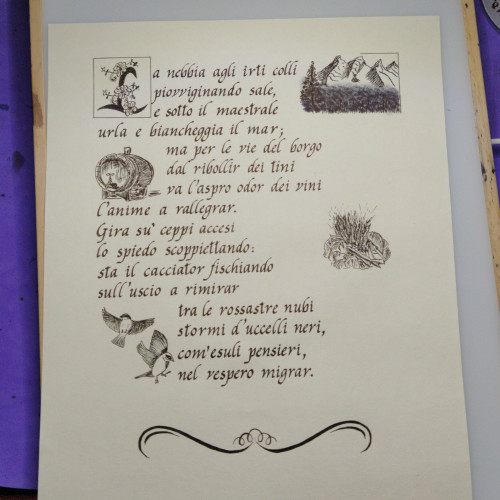 La nebbia agli irti colli
piovviginando sale,
e sotto il maestrale
urla e biancheggia il mar;
ma per le vie del borgo
dal ribollir dei tini
va l'aspro odor dei vini
l'anime a rallegrar.
Gira su' ceppi accesi
lo spiedo scoppiettando:
sta il cacciator fischiando
sull'uscio a rimirar
tra le rossastre nubi
stormi d'uccelli neri,
com'esuli pensieri,
nel vespero migrar.